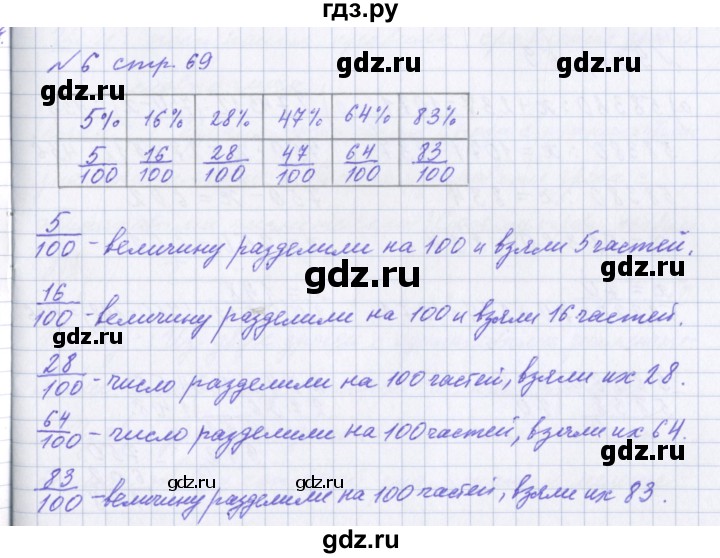 гдз.ру
№ 6 стр. 69
gdz.ru gdz.ru
5% 16% 28% 47% 64% 83%
5/100 16/100 28/100 47/100 64/100 83/100
5/100 - величину разделили на 100 и взяли 5 частей.
gdz.ru gdz.ru
16/100 - величину разделили на 100 и взяли 16 частей.
gdz.ru
28/100 - число разделили на 100 частей, взяли их 28.
gdz.ru
64/100 - число разделили на 100 частей, взяли их 64.
gdz.ru gdz.ru gdz.ru
83/100 - величину разделили на 100 частей, взяли их 83.
gdz.ru